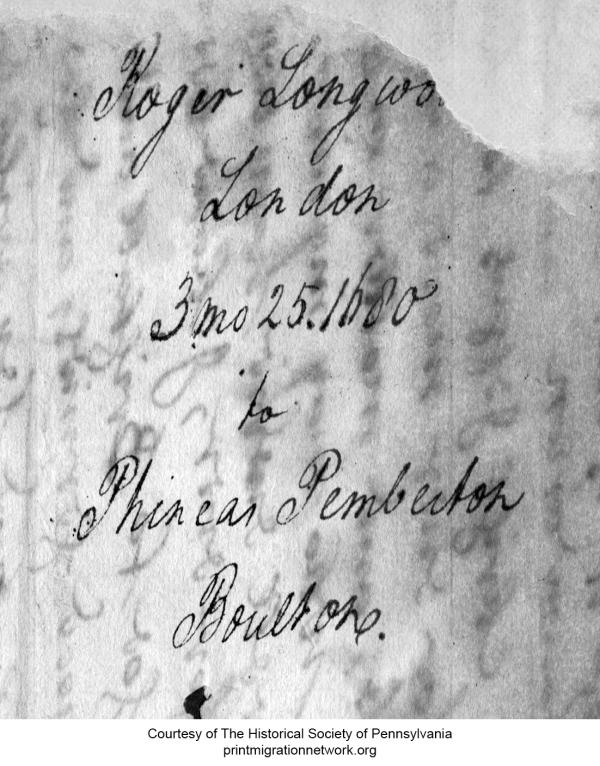 Roger Longwo
London
3 mo 25. 1680
to
Phineas Pemberton
Boulton.
Courtesy of The Historical Society of Pennsylvania
printmigrationnetwork.org